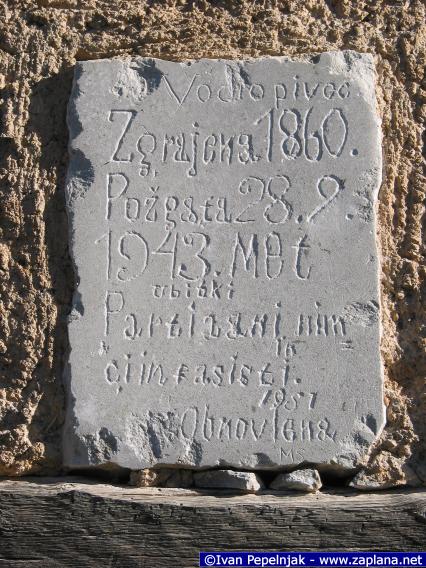 Vodopivec
Zgrajena 1860.
Požgata 28.9.
1943. Met
ubiski
Partizani nim=
iк
či in fasisti.
1951
Obnovlena
MS
©Ivan Pepelnjak - www.zaplana.net